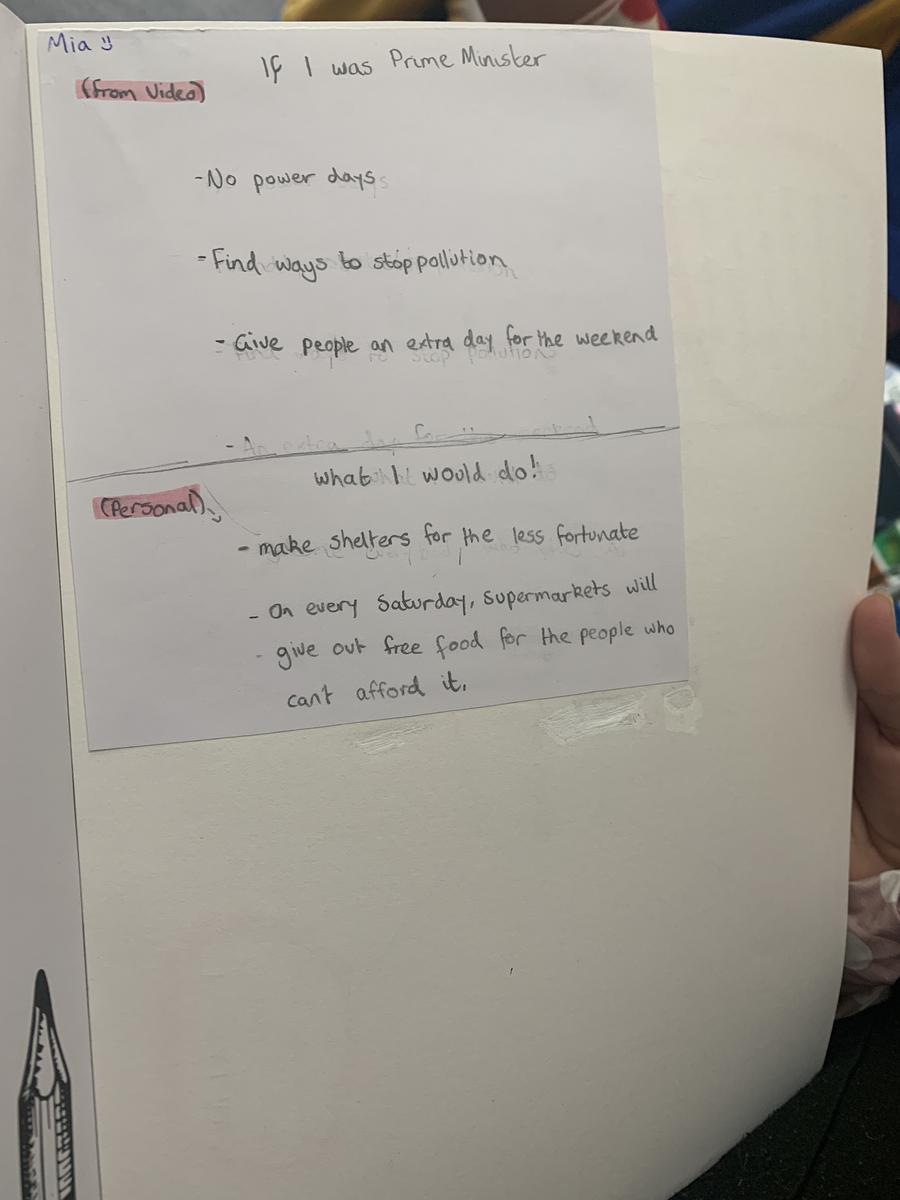 Mia
If I was Prime Minister
(from Video)
-No power days
-Find ways to stop pollution
- Give people an extra day for the weekend
- An extra day for
what I would do!
(Personal)
- make shelters for the less fortunate
- On every Saturday, supermarkets will
- give out free food for the people who
can't afford it.